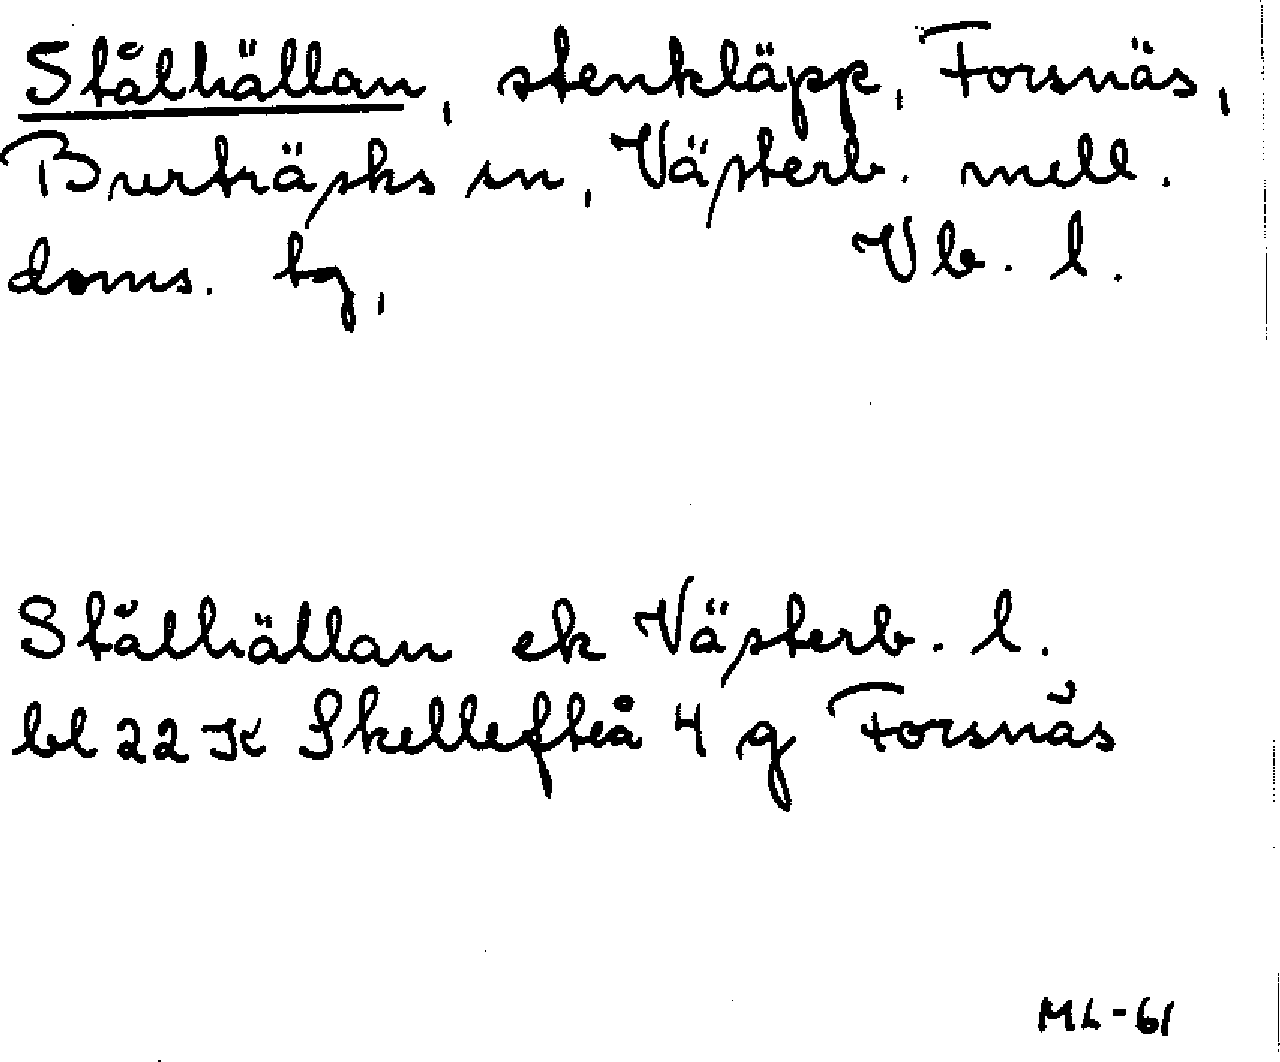 Stålhällan, stenkläpp, Forsnäs,
Burträsks sn, Västerb. mell.
doms. tg, Vb. l.
Stålhällan ek Västerb. l.
bl 22 K Skellefteå 4 g Forsnäs
ML-61